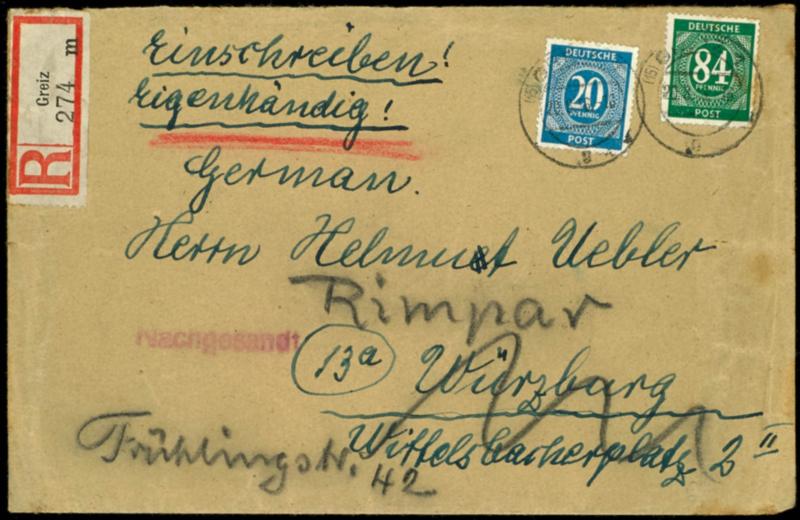 R
Greiz
274
m
Einschreiben!
Eigenhändig!
German.
DEUTSCHE
20
PFENNIG
POST
DEUTSCHE
84
PFENNIG
POST
Herrn Helmut Uebler
Rimpar
Nachgesandt
13a Würzburg
Wittelsbacherplatz 2 II
Frühlingstr. 42